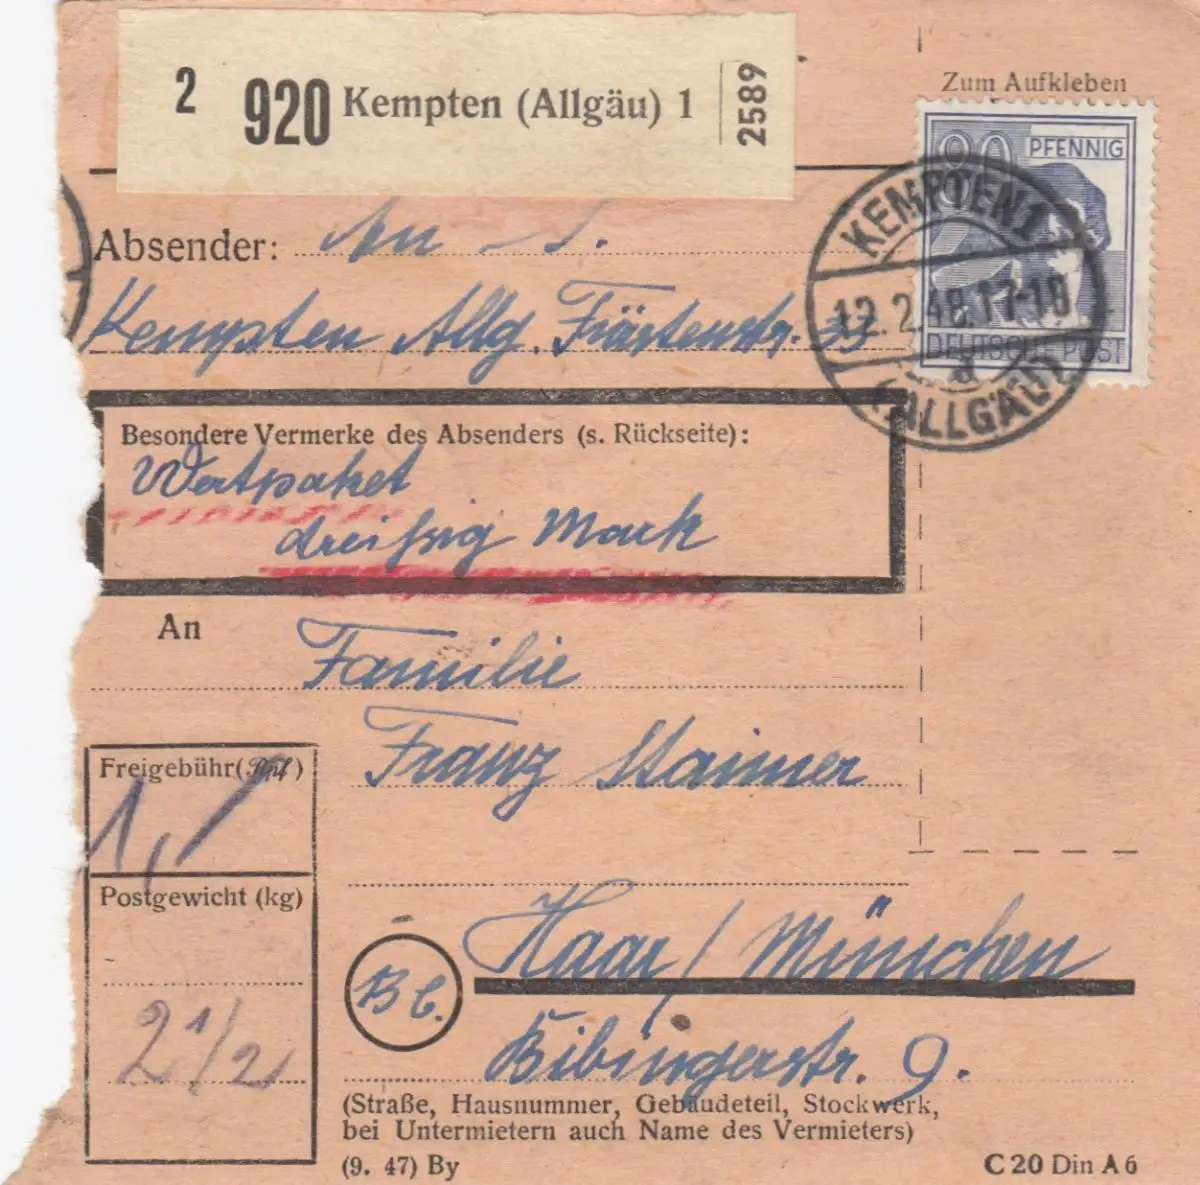 2 920 Kempten (Allgäu) 1 2589
Zum Aufkleben
80 PFENNIG
DEUTSCHE POST
KEMPTEN 1
12.2.48.17-18
d
(ALLGÄU)
Absender:
Kempten Allg. Fürstenstr. 33
Besondere Vermerke des Absenders (s. Rückseite):
Wertpaket
dreißig Mark
An Familie
Franz Staimer
Freigebühr (Rpf)
1,
Postgewicht (kg)
2 1/2
Haar / München
Bibingerstr. 9.
(Straße, Hausnummer, Gebäudeteil, Stockwerk,
bei Untermietern auch Name des Vermieters)
(9. 47) By
C 20 Din A 6